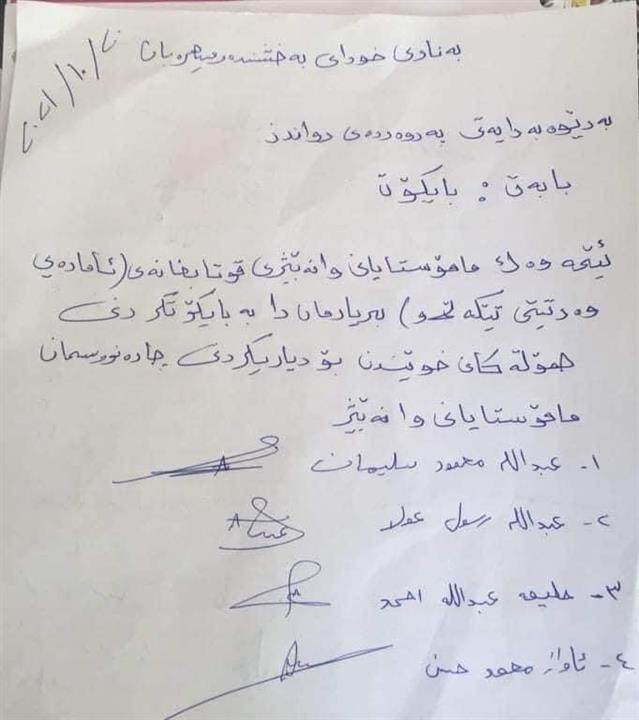 بەناوی خودای بەخشندە و میهرەبان
٢٠٢١/١٠/٢٠
بەڕێوەبەرایەتی پەروەردەی ڕواندز
بابەت : بایکۆت
ئێمە وەك مامۆستایانی وانەبێژی قوتابخانەی (ئامادەیی
وەرتێی تێکەڵاو) بڕیارماندا بە بایکۆتکردنی
هۆڵەکانی خوێندن بۆ دیاریکردنی چارەنووسمان
مامۆستایانی وانەبێژ
١- عبدالله محمود سليمان
٢- عبدالله رسول عولا
٣- عبدالله احمد
٤- محمود حسن